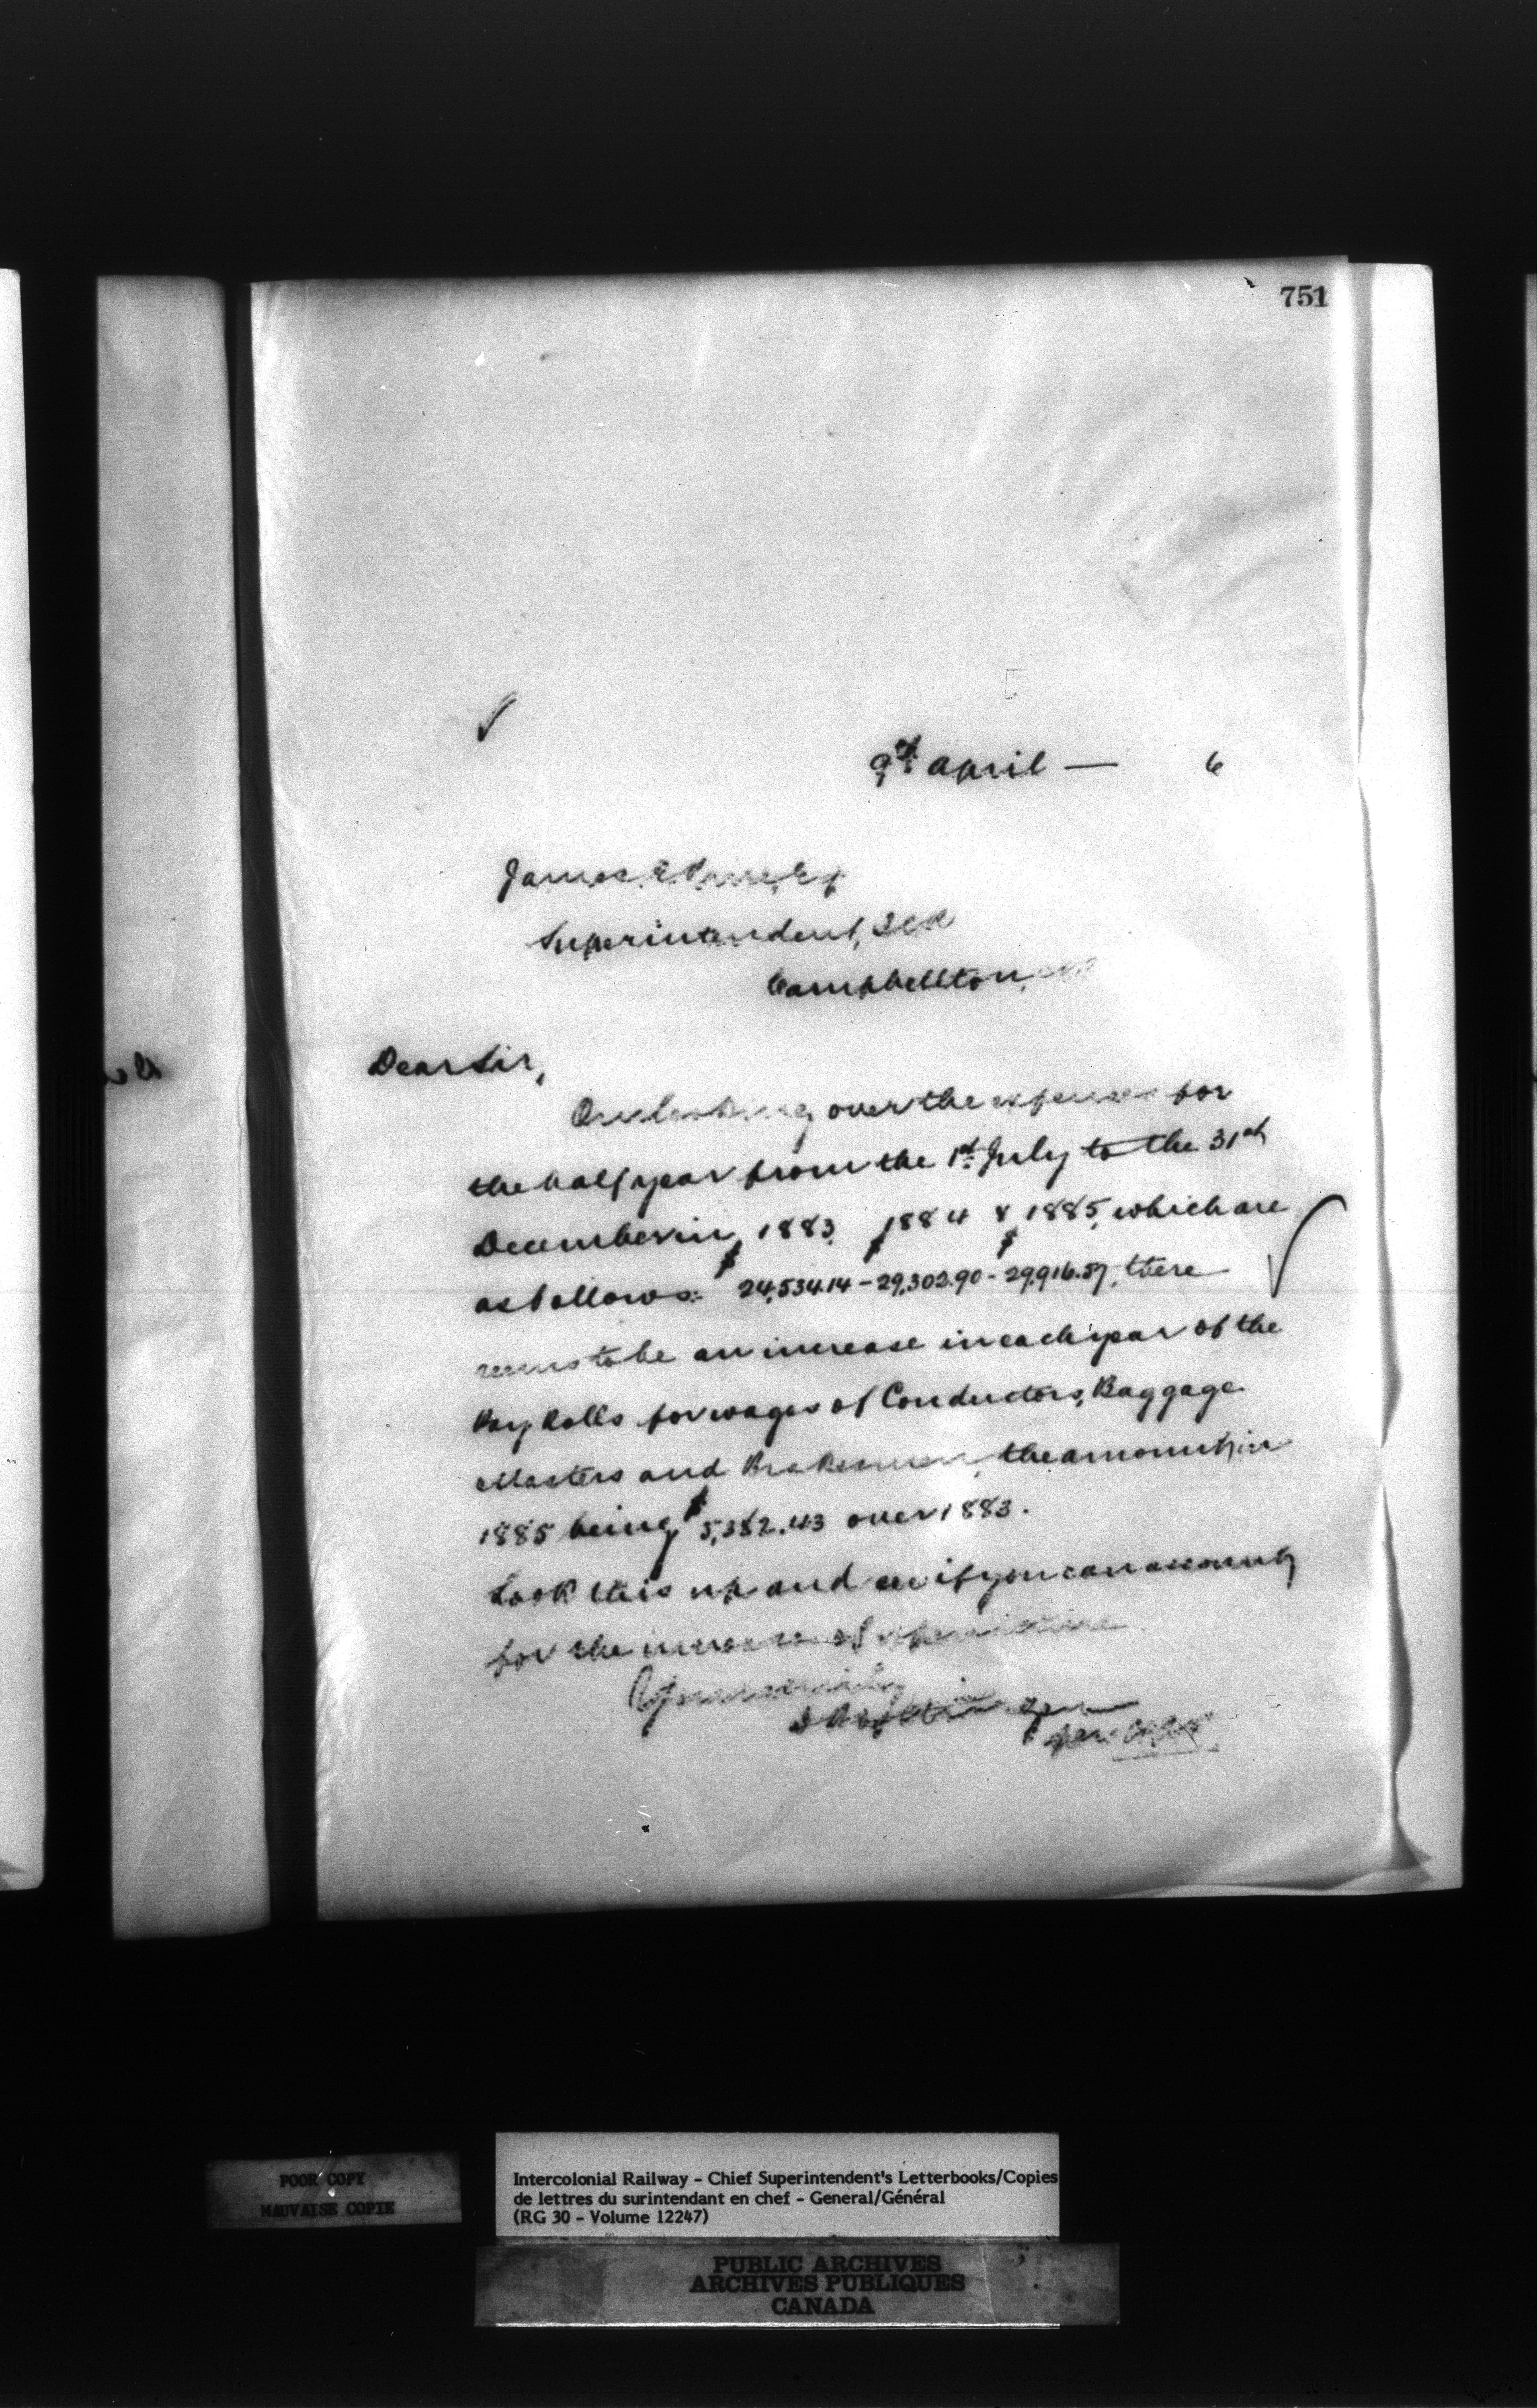 751
9th April — 6
James E Price, Esq
Superintendent, ICR
Campbellton, NB
Dear Sir,
On looking over the expenses for
the half year from the 1st July to the 31st
December in 1883, 1884 & 1885, which are
as follows: $24,534.14 - $29,302.90 - $29,916.57, there
seems to be an increase in each year of the
Pay Rolls for wages of Conductors, Baggage
Masters and Brakesmen, the amount in
1885 being $5,382.43 over 1883.
Look this up and see if you can account
for the increase of expenditure
Yours truly
per
POOR COPY
MAUVAISE COPIE
Intercolonial Railway - Chief Superintendent's Letterbooks/Copies
de lettres du surintendant en chef - General/Général
(RG 30 - Volume 12247)
PUBLIC ARCHIVES
ARCHIVES PUBLIQUES
CANADA